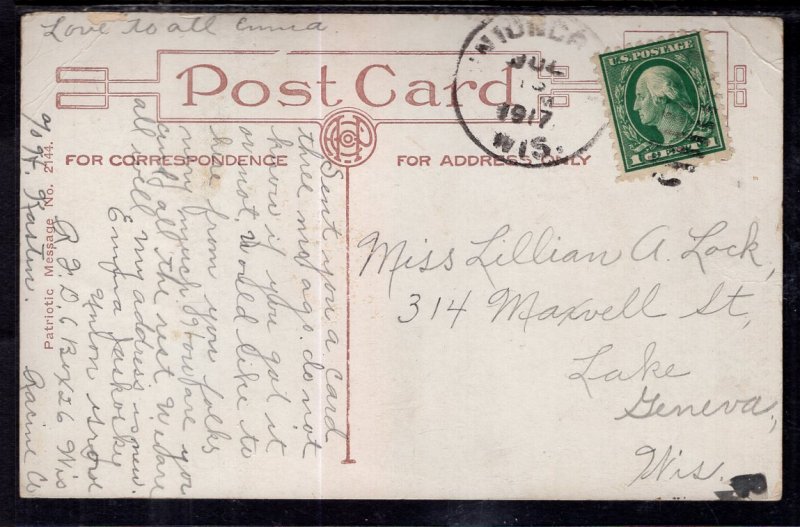 Love to all Emma
Post Card
FOR CORRESPONDENCE
FOR ADDRESS ONLY
UNION GR
JUL
1917
WIS.
U.S. POSTAGE
1 CENT 1
Miss Lillian A. Lock,
314 Maxwell St,
Lake
Geneva,
Wis.
Sent you a card
three mos ago. do not
know if you got it
or not. Would like to
he from you folks
very much. How are you
and all the rest. We are
all well my address is new.
Emma Jaskosky
Union Grove
R. F. D. 6 Box 26 Wis
℅ H. Kasten. Racine Co
Patriotic Message No. 2144.